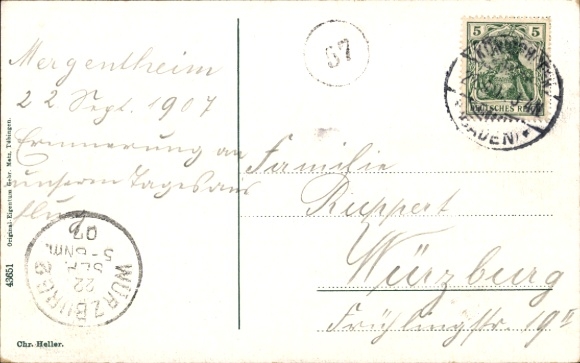 Mergentheim
22 Sept. 1907
Erinnerung an
unserm Tagesaus
flug
Familie
Ruppert
Würzburg
Frühlingstr. 19 II
67
5 5
DEUTSCHES REICH
(BADEN)
WÜRZBURG 2
22
SEP.
5-6NM.
07
43651 Original-Eigentum Gebr. Metz, Tübingen.
Chr. Heller.